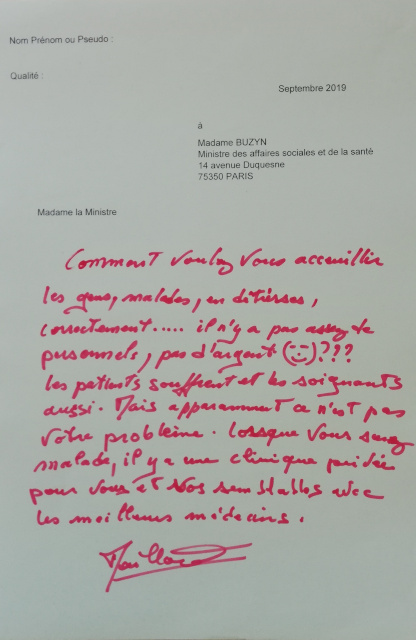 Nom Prénom ou Pseudo :
Qualité :
Septembre 2019
à
Madame BUZYN
Ministre des affaires sociales et de la santé
14 avenue Duquesne
75350 PARIS
Madame la Ministre
Comment voulez vous acceuillir
les gens, malades, en détresses,
correctement..... il n'y a pas assez de
personnels, pas d'argent (😊)???
les patients souffrent et les soignants
aussi. Mais apparamment ce n'est pas
votre problème. Lorsque vous serez
malade, il y a une clinique privée
pour vous et vos semblables avec
les meilleurs médecins.